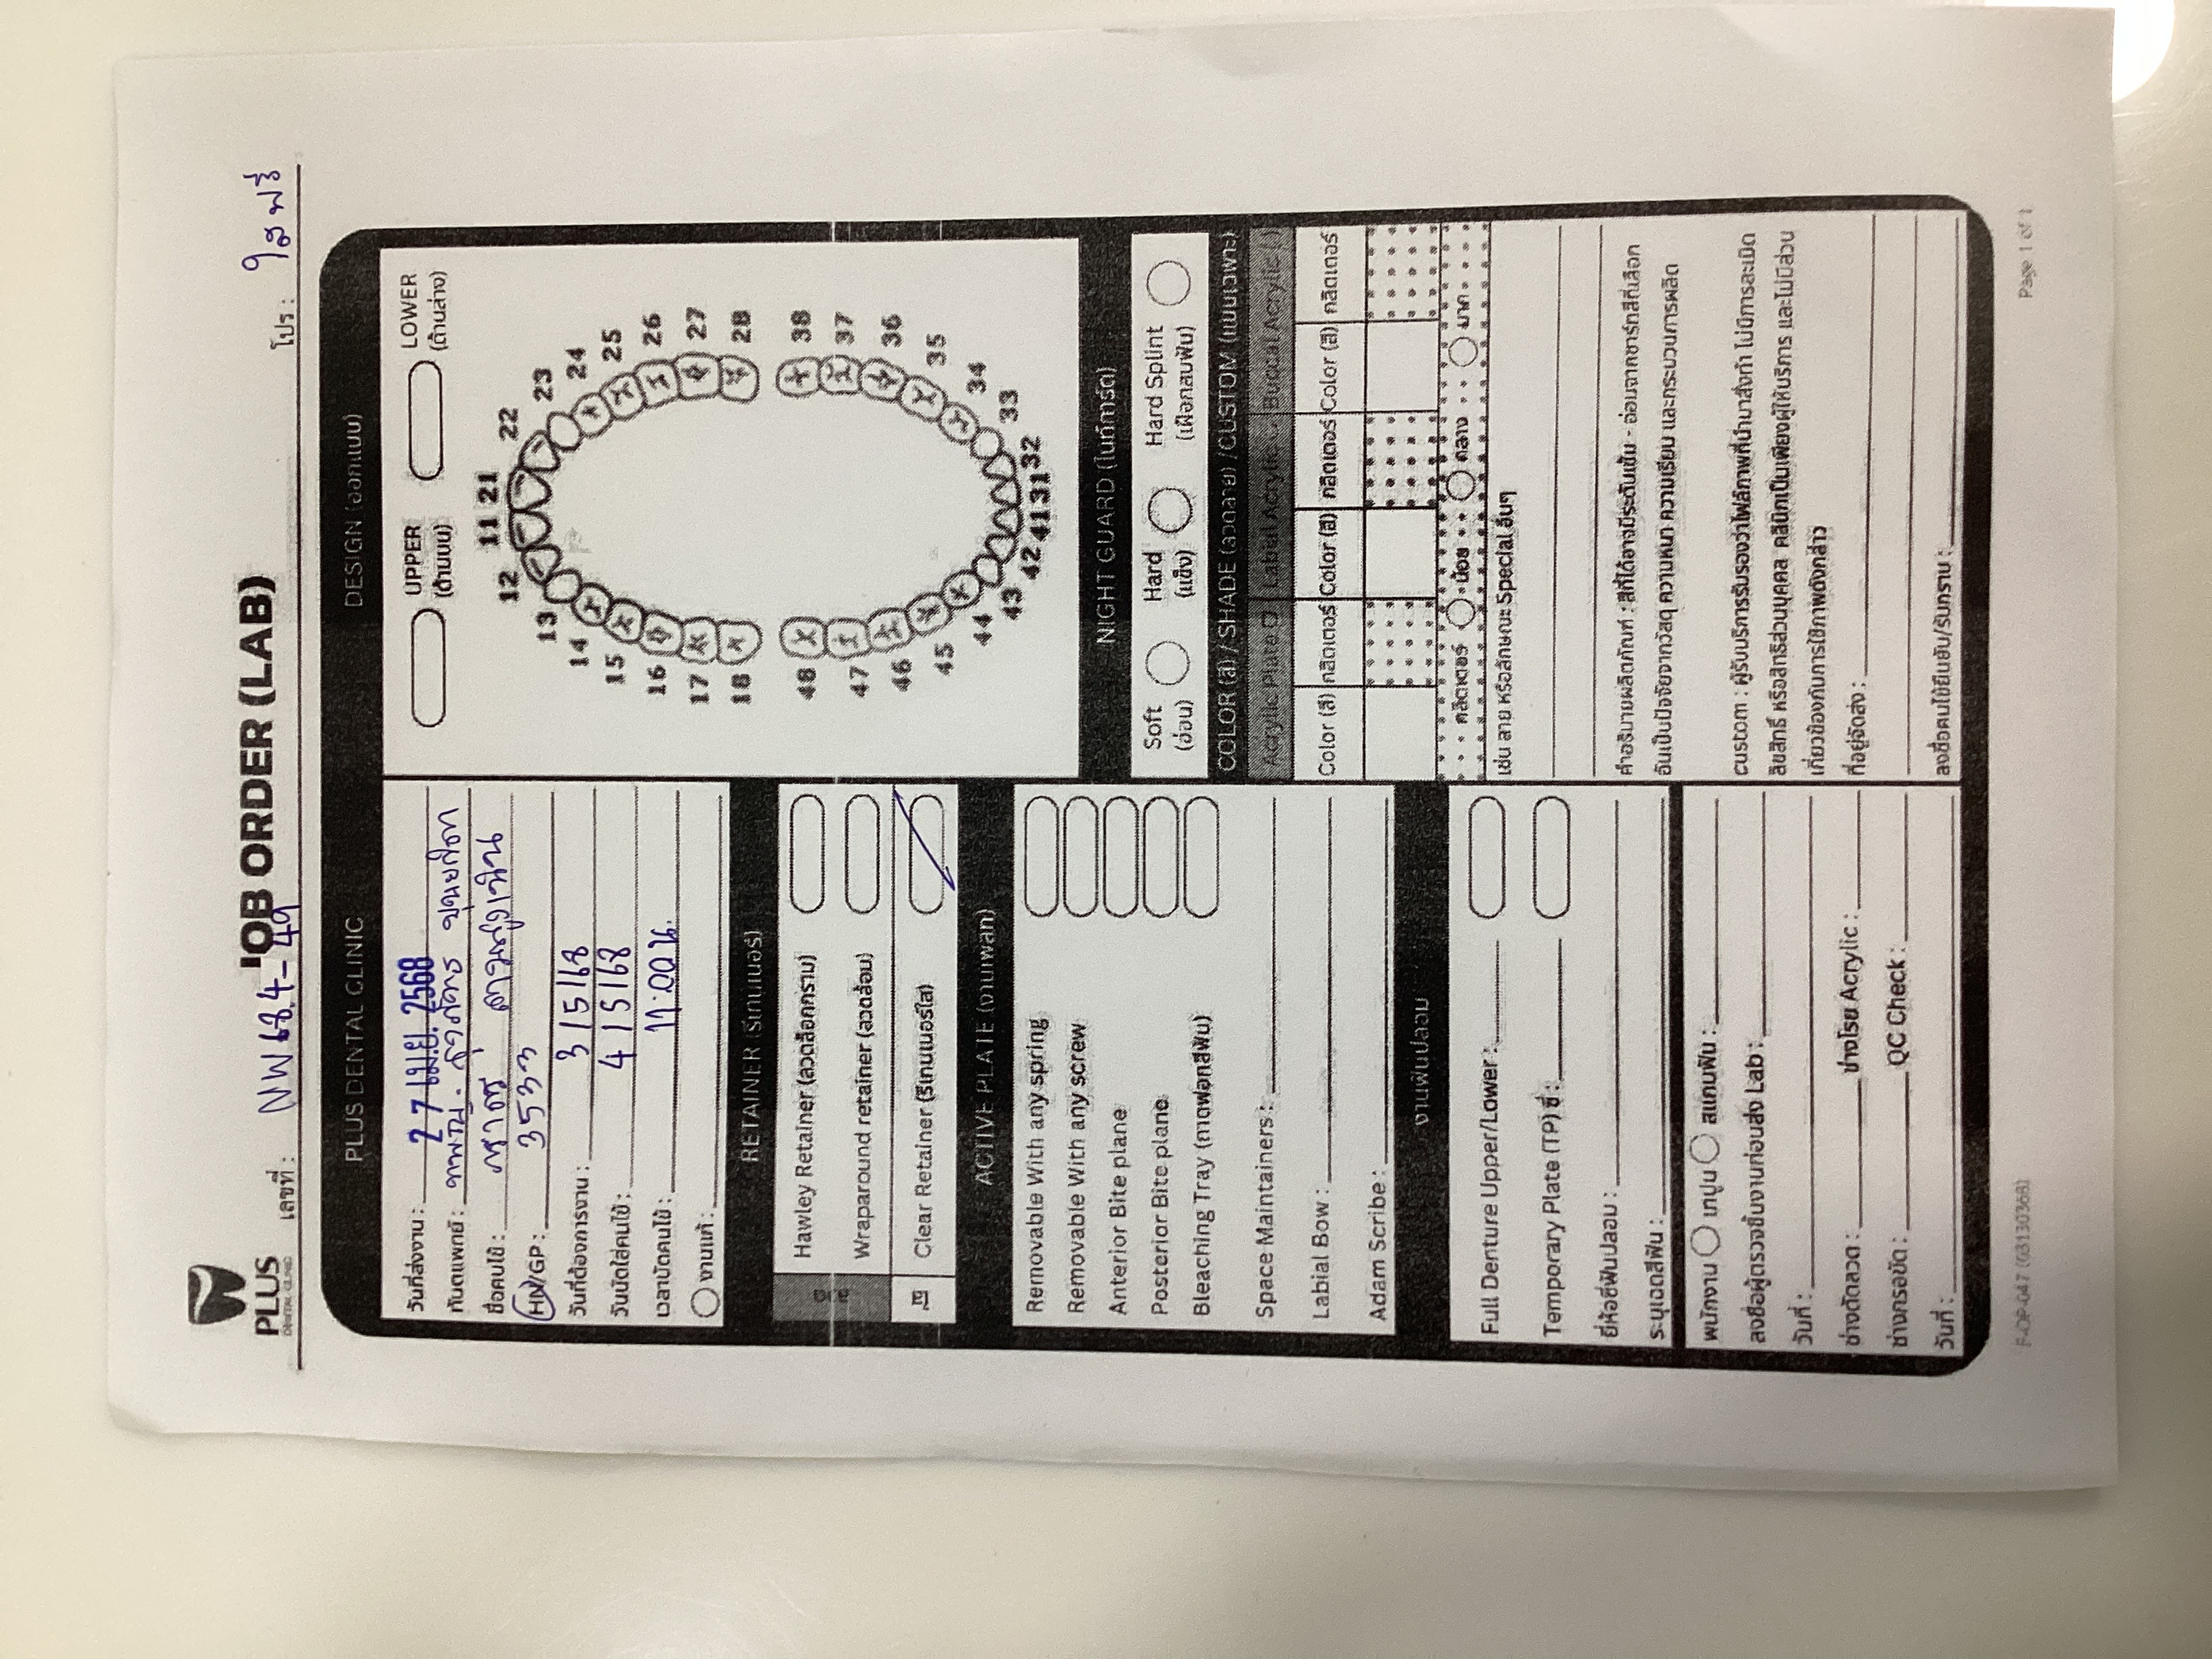 PLUS
DENTAL CLINIC
JOB ORDER (LAB)
เลขที่ : NW68.4-49
โปร : ใสฟรี
PLUS DENTAL CLINIC
วันที่ส่งงาน : 27 เม.ย. 2568
ทันตแพทย์ :
ชื่อคนไข้ :
HN/GP : 3533
วันที่ต้องการงาน : 3/5/68
วันนัดใส่คนไข้ : 4/5/68
เวลานัดคนไข้ : 11:00 น.
งานแก้ :
RETAINER (รีเทนเนอร์)
ลวด
Hawley Retainer (ลวดล็อกกราม)
Wraparound retainer (ลวดล้อม)
ใส
Clear Retainer (รีเทนเนอร์ใส)
ACTIVE PLATE (งานเพลท)
Removable With any spring
Removable With any screw
Anterior Bite plane
Posterior Bite plane
Bleaching Tray (ถาดฟอกสีฟัน)
Space Maintainers :
Labial Bow :
Adam Scribe :
งานฟันปลอม
Full Denture Upper/Lower :
Temporary Plate (TP) ซี่ :
ยี่ห้อซี่ฟันปลอม :
ระบุเฉดสีฟัน :
พนักงาน เทปูน สแกนฟัน :
ลงชื่อผู้ตรวจชิ้นงานก่อนส่ง Lab :
วันที่ :
ช่างดัดลวด : ช่างโรย Acrylic :
ช่างกรอขัด : QC Check :
วันที่ :
DESIGN (ออกแบบ)
UPPER
(ด้านบน)
LOWER
(ด้านล่าง)
11 21
12 22
13 23
14 24
15 25
16 26
17 27
18 28
48 38
47 37
46 36
45 35
44 34
43 33
42 41 31 32
NIGHT GUARD (ไนท์การ์ด)
Soft
(อ่อน)
Hard
(แข็ง)
Hard Splint
(เฝือกสบฟัน)
COLOR (สี) / SHADE (ลวดลาย) /CUSTOM (แบบเฉพาะ)
Acrylic Plate Labial Acrylic Buccal Acrylic
Color (สี) กลิตเตอร์ Color (สี) กลิตเตอร์ Color (สี) กลิตเตอร์
กลิตเตอร์ น้อย กลาง มาก
เช่น ลาย หรือลักษณะ Special อื่นๆ
คำอธิบายผลิตภัณฑ์ : สีที่ได้อาจมีระดับเข้ม - อ่อนจากชาร์ทสีที่เลือก
อันเป็นปัจจัยจากวัสดุ ความหนา ความเรียบ และกระบวนการผลิต
custom : ผู้รับบริการรับรองว่าไฟล์ภาพที่นำมาสั่งทำ ไม่มีการละเมิด
ลิขสิทธิ์ หรือสิทธิส่วนบุคคล คลินิกเป็นเพียงผู้ให้บริการ และไม่มีส่วน
เกี่ยวข้องกับการใช้ภาพดังกล่าว
ที่อยู่จัดส่ง :
ลงชื่อคนไข้ยืนยัน/รับทราบ :
F-OP-047 (03130368)
Page 1 of 1